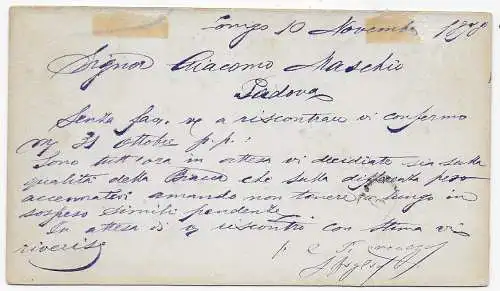 Lonigo 10 Novembre 1878
Signor Giacomo Maschio
Padova
Senza fav. a riscontrar vi confermo
31 ottobre p.p.
Sono tutt'ora in attesa vi decidiate sia sulla
qualità della che sulla differenza peso
amando non tenere a lungo in
sospeso simili pendenze
In attesa di riscontro con stima vi
riverisco